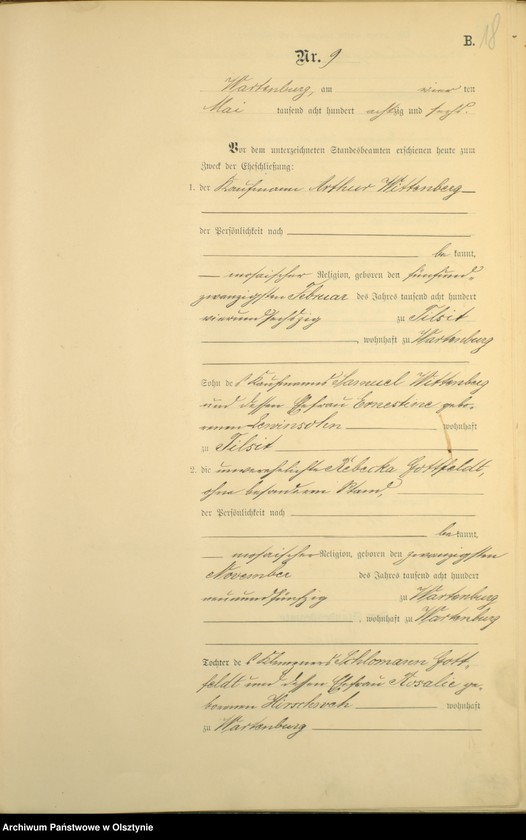 B. 18
Nr. 9
Wartenburg, am vier ten
Mai tausend acht hundert achtzig und sechs.
Vor dem unterzeichneten Standesbeamten erschienen heute zum
Zweck der Eheschließung:
1. der Kaufmann Arthur Wittenberg
der Persönlichkeit nach
be kannt,
mosaischer Religion, geboren den fünfund-
zwanzigsten Februar des Jahres tausend acht hundert
vierundsechszig zu Tilsit
, wohnhaft zu Wartenburg
Sohn des Kaufmanns Samuel Wittenberg
und dessen Ehefrau Ernestine gebo-
renen Lewinsohn wohnhaft
zu Tilsit
2. die unverehelichte Rebecka Gottfeldt,
ohne besonderen Stand,
der Persönlichkeit nach
be kannt,
mosaischer Religion, geboren den zwanzigsten
November des Jahres tausend acht hundert
neunundfünfzig zu Wartenburg
, wohnhaft zu Wartenburg
Tochter des Klempners Schlomann Gott-
feldt und dessen Ehefrau Rosalie ge-
borenen Hirschwah wohnhaft
zu Wartenburg
Archiwum Państwowe w Olsztynie